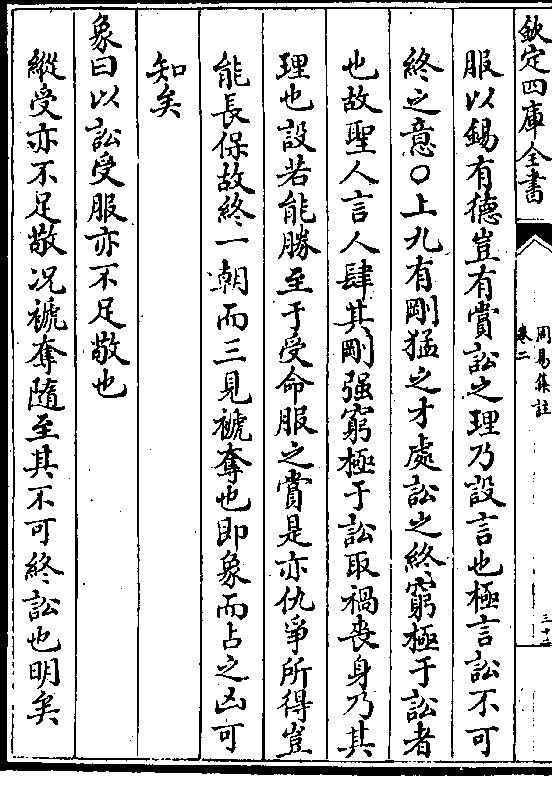 欽定四庫全書
周易集註
卷二
三十二
服以錫有德豈有賞訟之理乃設言也極言訟不可
終之意○上九有剛猛之才處訟之終窮極于訟者
也故聖人言人肆其剛强窮極于訟取禍喪身乃其
理也設若能勝至于受命服之賞是亦仇爭所得豈
能長保故終一朝而三見褫奪也即象而占之凶可
知矣
象曰以訟受服亦不足敬也
縱受亦不足敬况褫奪隨至其不可終訟也明矣